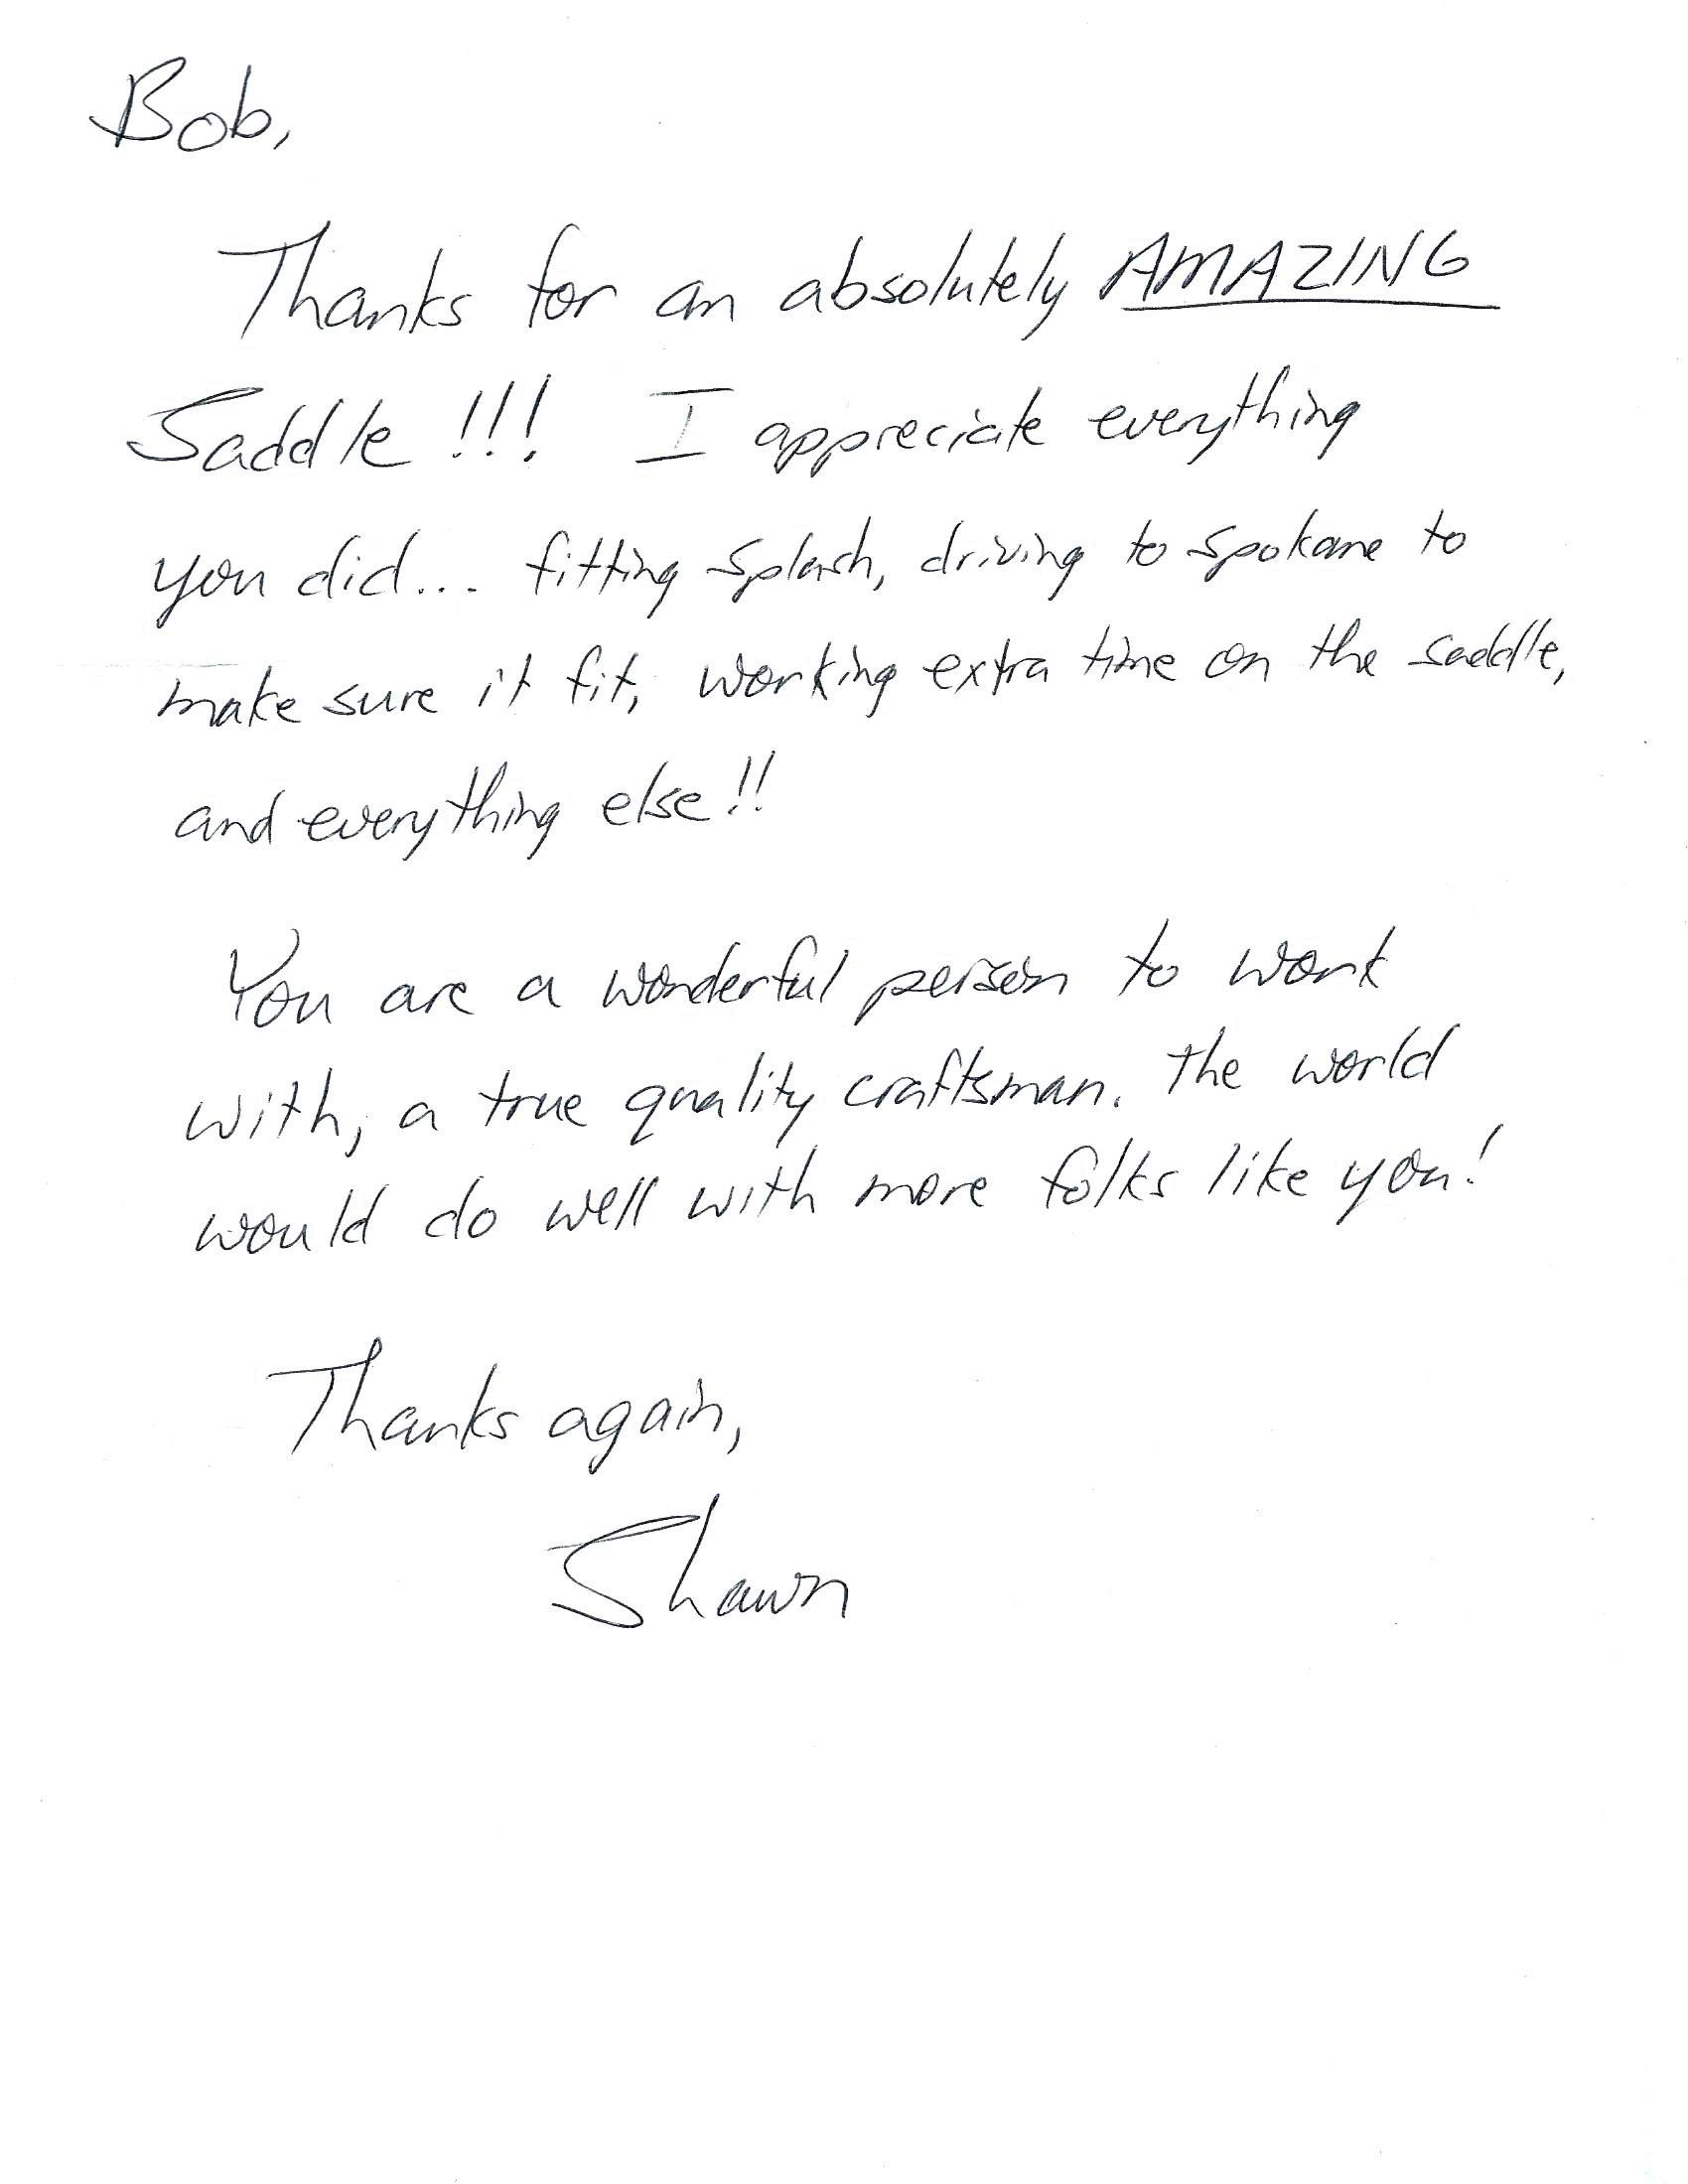 Bob,
Thanks for an absolutely AMAZING
Saddle!!! I appreciate everything
you did... fitting splash, driving to spokane to
make sure it fit, working extra time on the saddle,
and everything else!!
You are a wonderful person to work
with, a true quality craftsman. The world
would do well with more folks like you!
Thanks again,
Shawn